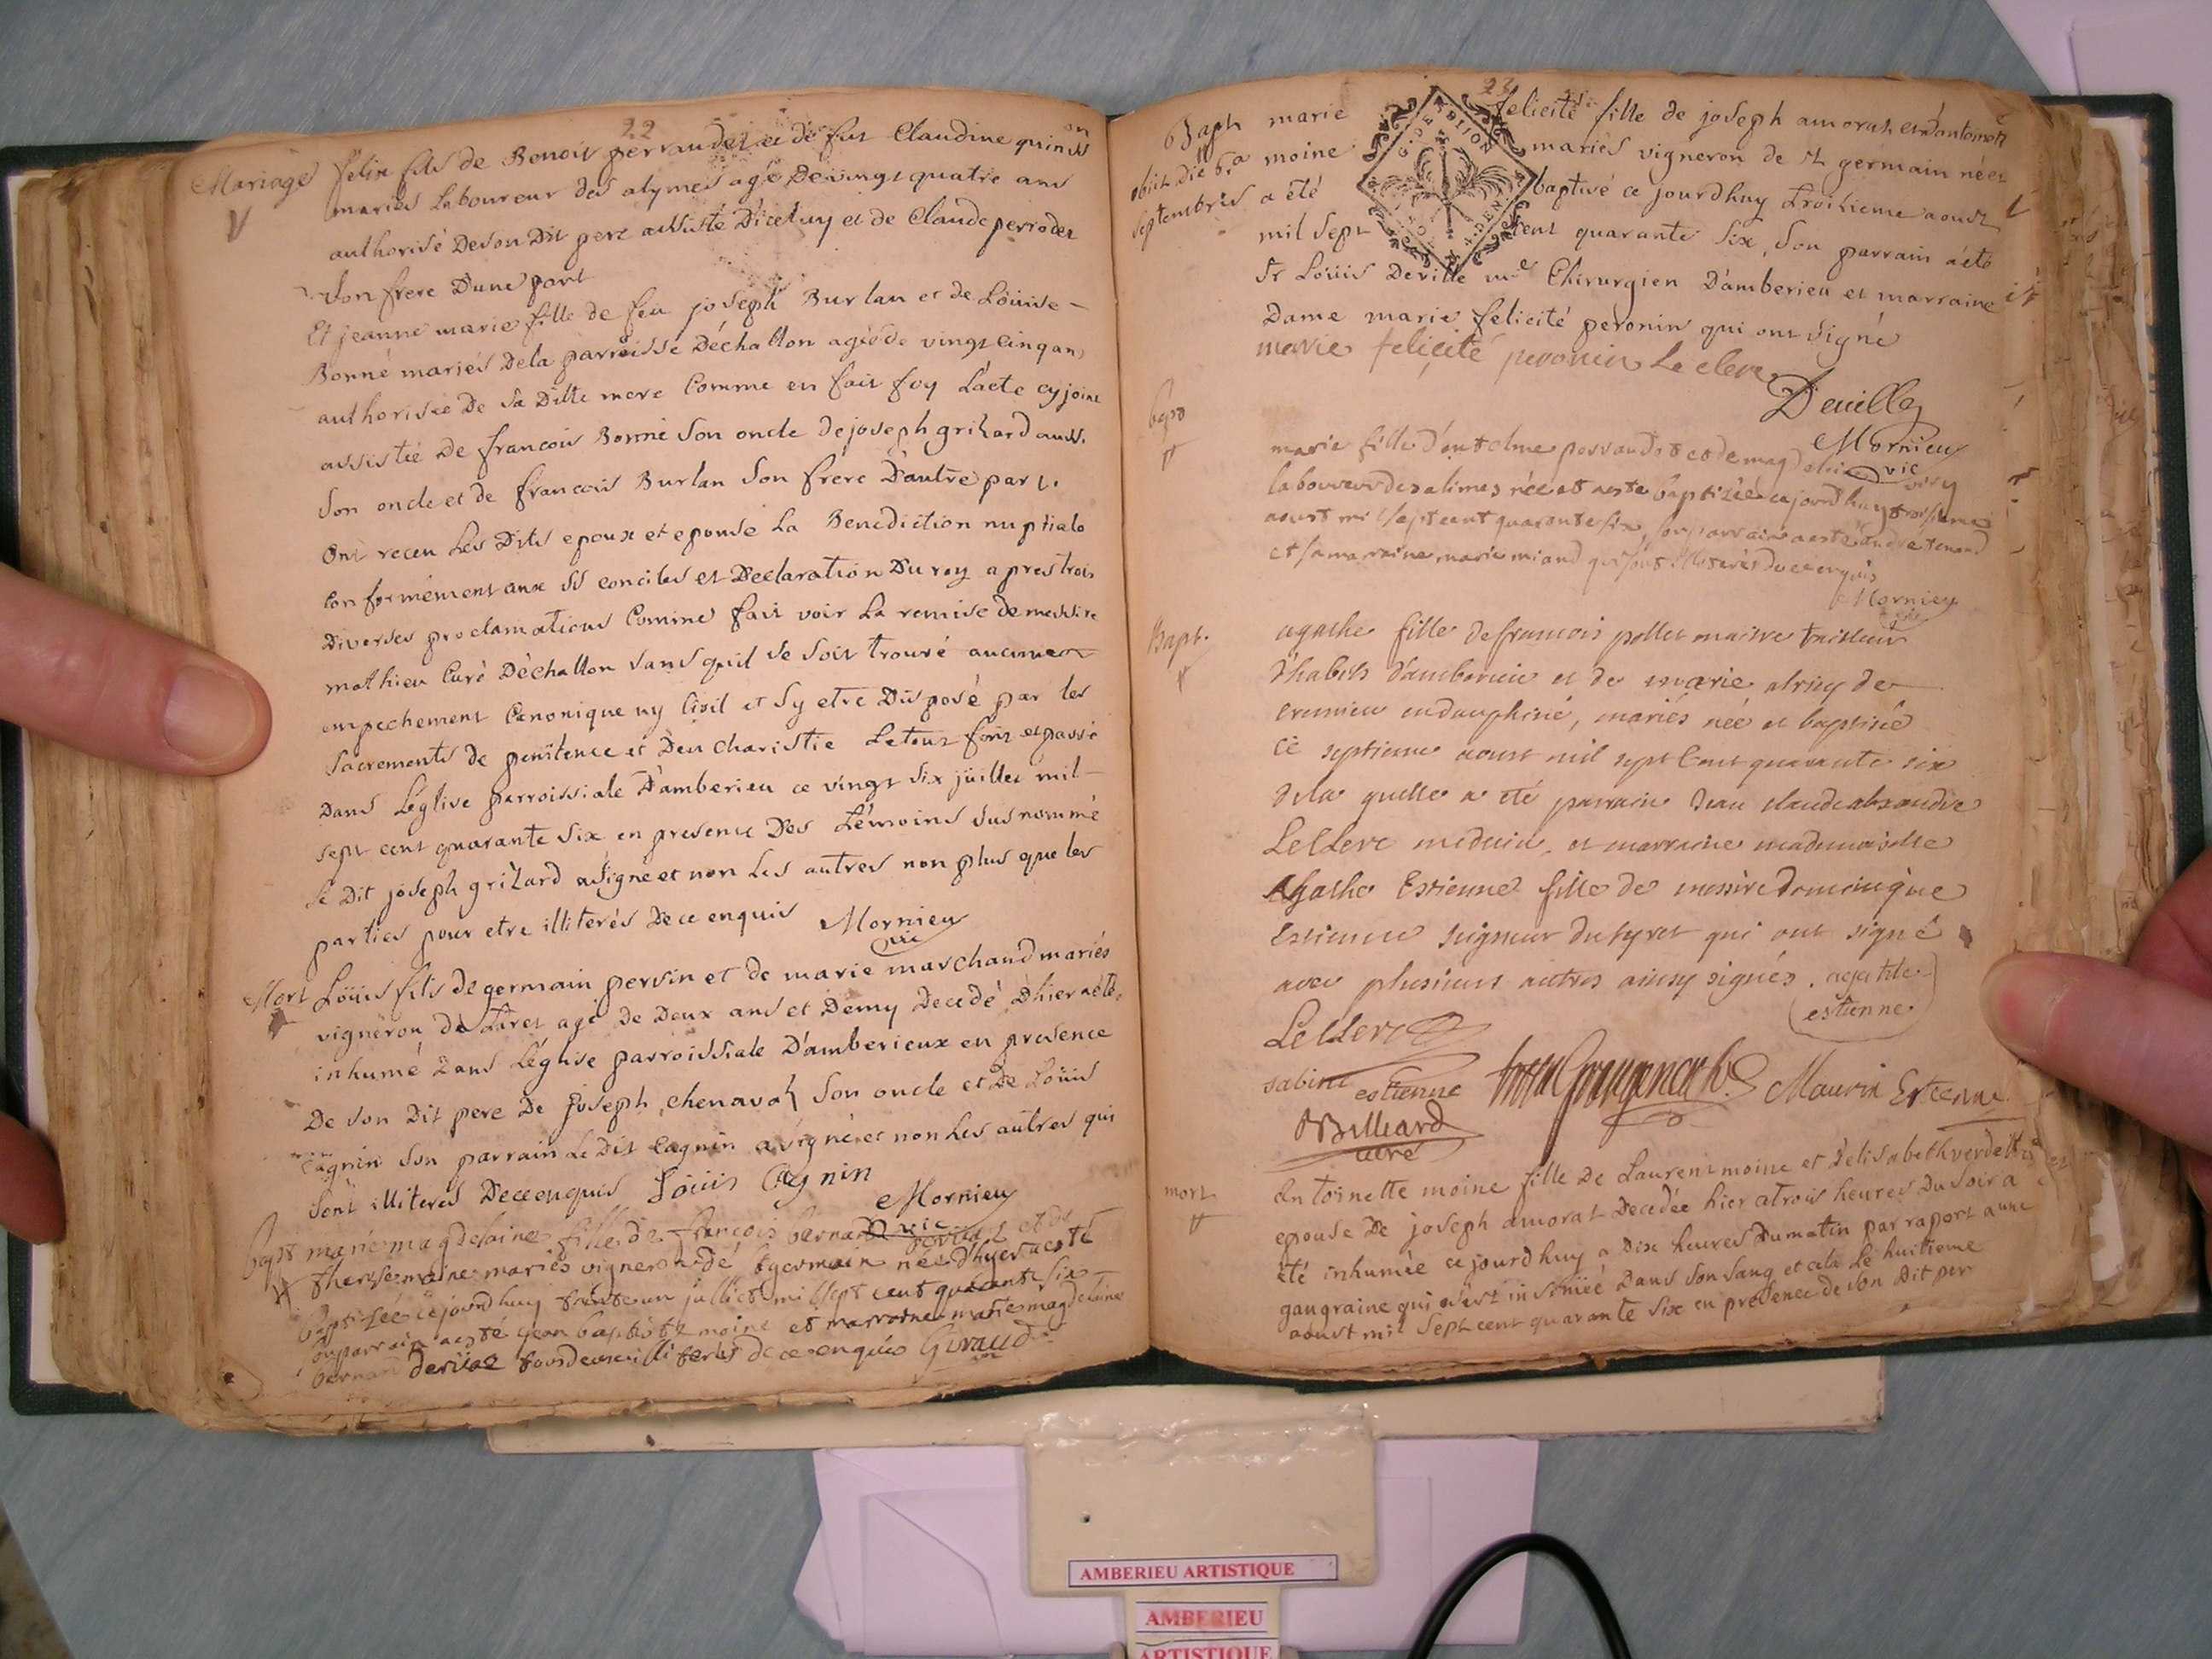 22
Mariage felix fils de Benoit perraudet et de fut Claudine quinson
mariés laboureur des alymes agé De vingt quatre ans
authorisé De son Dit pere assisté D'iceluy et de Claude perrodet
son frere D'une part
Et jeanne marie fille de feu joseph Burlan et de Loüise
Bonné mariés De la parroisse D'échallon agée de vingt cinq ans
authorisée De sa Ditte mere Comme en fait foy L'acte cy joint
assistée de francois Bonné son oncle de joseph grizard aussi
son oncle et de francois Burlan son frere D'autre part.
Ont receu Les Dits epoux et epouse La Benediction nuptiale
Conformément aux SS conciles et Declaration Du roy apres trois
Diverses proclamations Comme fait voir La remise de messire
mathieu Curé D'échallon sans quil se soit trouvé aucune
empechement Canonique ny Civil et s'y etre Disposé par les
sacrements de penitence et D'eucharistie Le tout fait et passé
Dans L'eglise parroissiale D'amberieu ce vingt six jüillet mil
sept cent quarante six en presence Des témoins susnommé
le Dit joseph grizard a signé et non Les autres non plus que les
parties pour etre illiterés De ce enquis Mornieu
vic
Mort Loüis fils de germain persin et de marie marchand mariés
vigneron de agé De Deux ans et Demy Decedé D'hier a été
inhumé Dans L'église parroissiale D'amberieux en presence
De son Dit pere De joseph chenavaz son oncle et De Loüis
Cagnin son parrain Le Dit Cagnin a signé et non Les autres qui
sont illiterés De ce enquis Loüis Cagnin
Mornieu
vic
bapt marie magdelaine fille de françois bernard et de
therese moine mariés vigneron de st germain née d'hyer a esté
baptizée ce jourd'huy trente un julliet mil sept cent quarante six
son parrain a esté jean baptiste moine et marraine marie magdelaine
bernard tous deux illiterés de ce enquis Giraud
23
Baph marie felicité fille de joseph amorat et d'antoinette
obiit die 6a moine mariés vigneron de st germain née et
septembris a été baptisé ce jourdhuy troisieme aoust
mil sept cent quarante six, son parrain a été
Sr Loüis Deville me Chirurgien D'amberieu et marraine
Dame marie felicité peronin qui ont signé
marie felicité peronin Le clerc
Deville
Mornieu
vic
bapt
marie fille d'entelme perraudet et de magdelaine
laboureur des alimes née et a esté baptizée ce jourd'huy troisieme
aoust mil sept cent quarante six, son parrain a esté andre tenand
et sa marraine marie miand qui sont illiterés de ce enquis
Mornieu
vic
Bapt.
agathe fille de francois pollet maitre tailleur
d'habits d'amberieu et de marie de
cremieu en dauphiné, mariés née et baptisée
ce septieme aoust mil sept Cent quarante six
de la quelle a été parrain Jean claude alexandre
LeClerc medecin, et marraine mademoiselle
Agathe Estienne fille de messire dominique
Estienne seigneur du tyret qui ont signé
avec plusieurs autres ainsy signés. agathe
estienne
LeClerc
sabine estienne Maurin Estienne
Billiard
curé
mort
Antoinette moine fille de Laurent moine et D'elisabeth verdet
epouse De joseph amorat Decedée hier a trois heures Du soir a
été inhumée ce jourd'huy a Dix heures Du matin par raport a une
gangraine qui s'est insinüée Dans son sang et cela Le huitieme
aoust mil sept cent quarante six en presence de son Dit per
AMBERIEU ARTISTIQUE
AMBERIEU
ARTISTIQUE